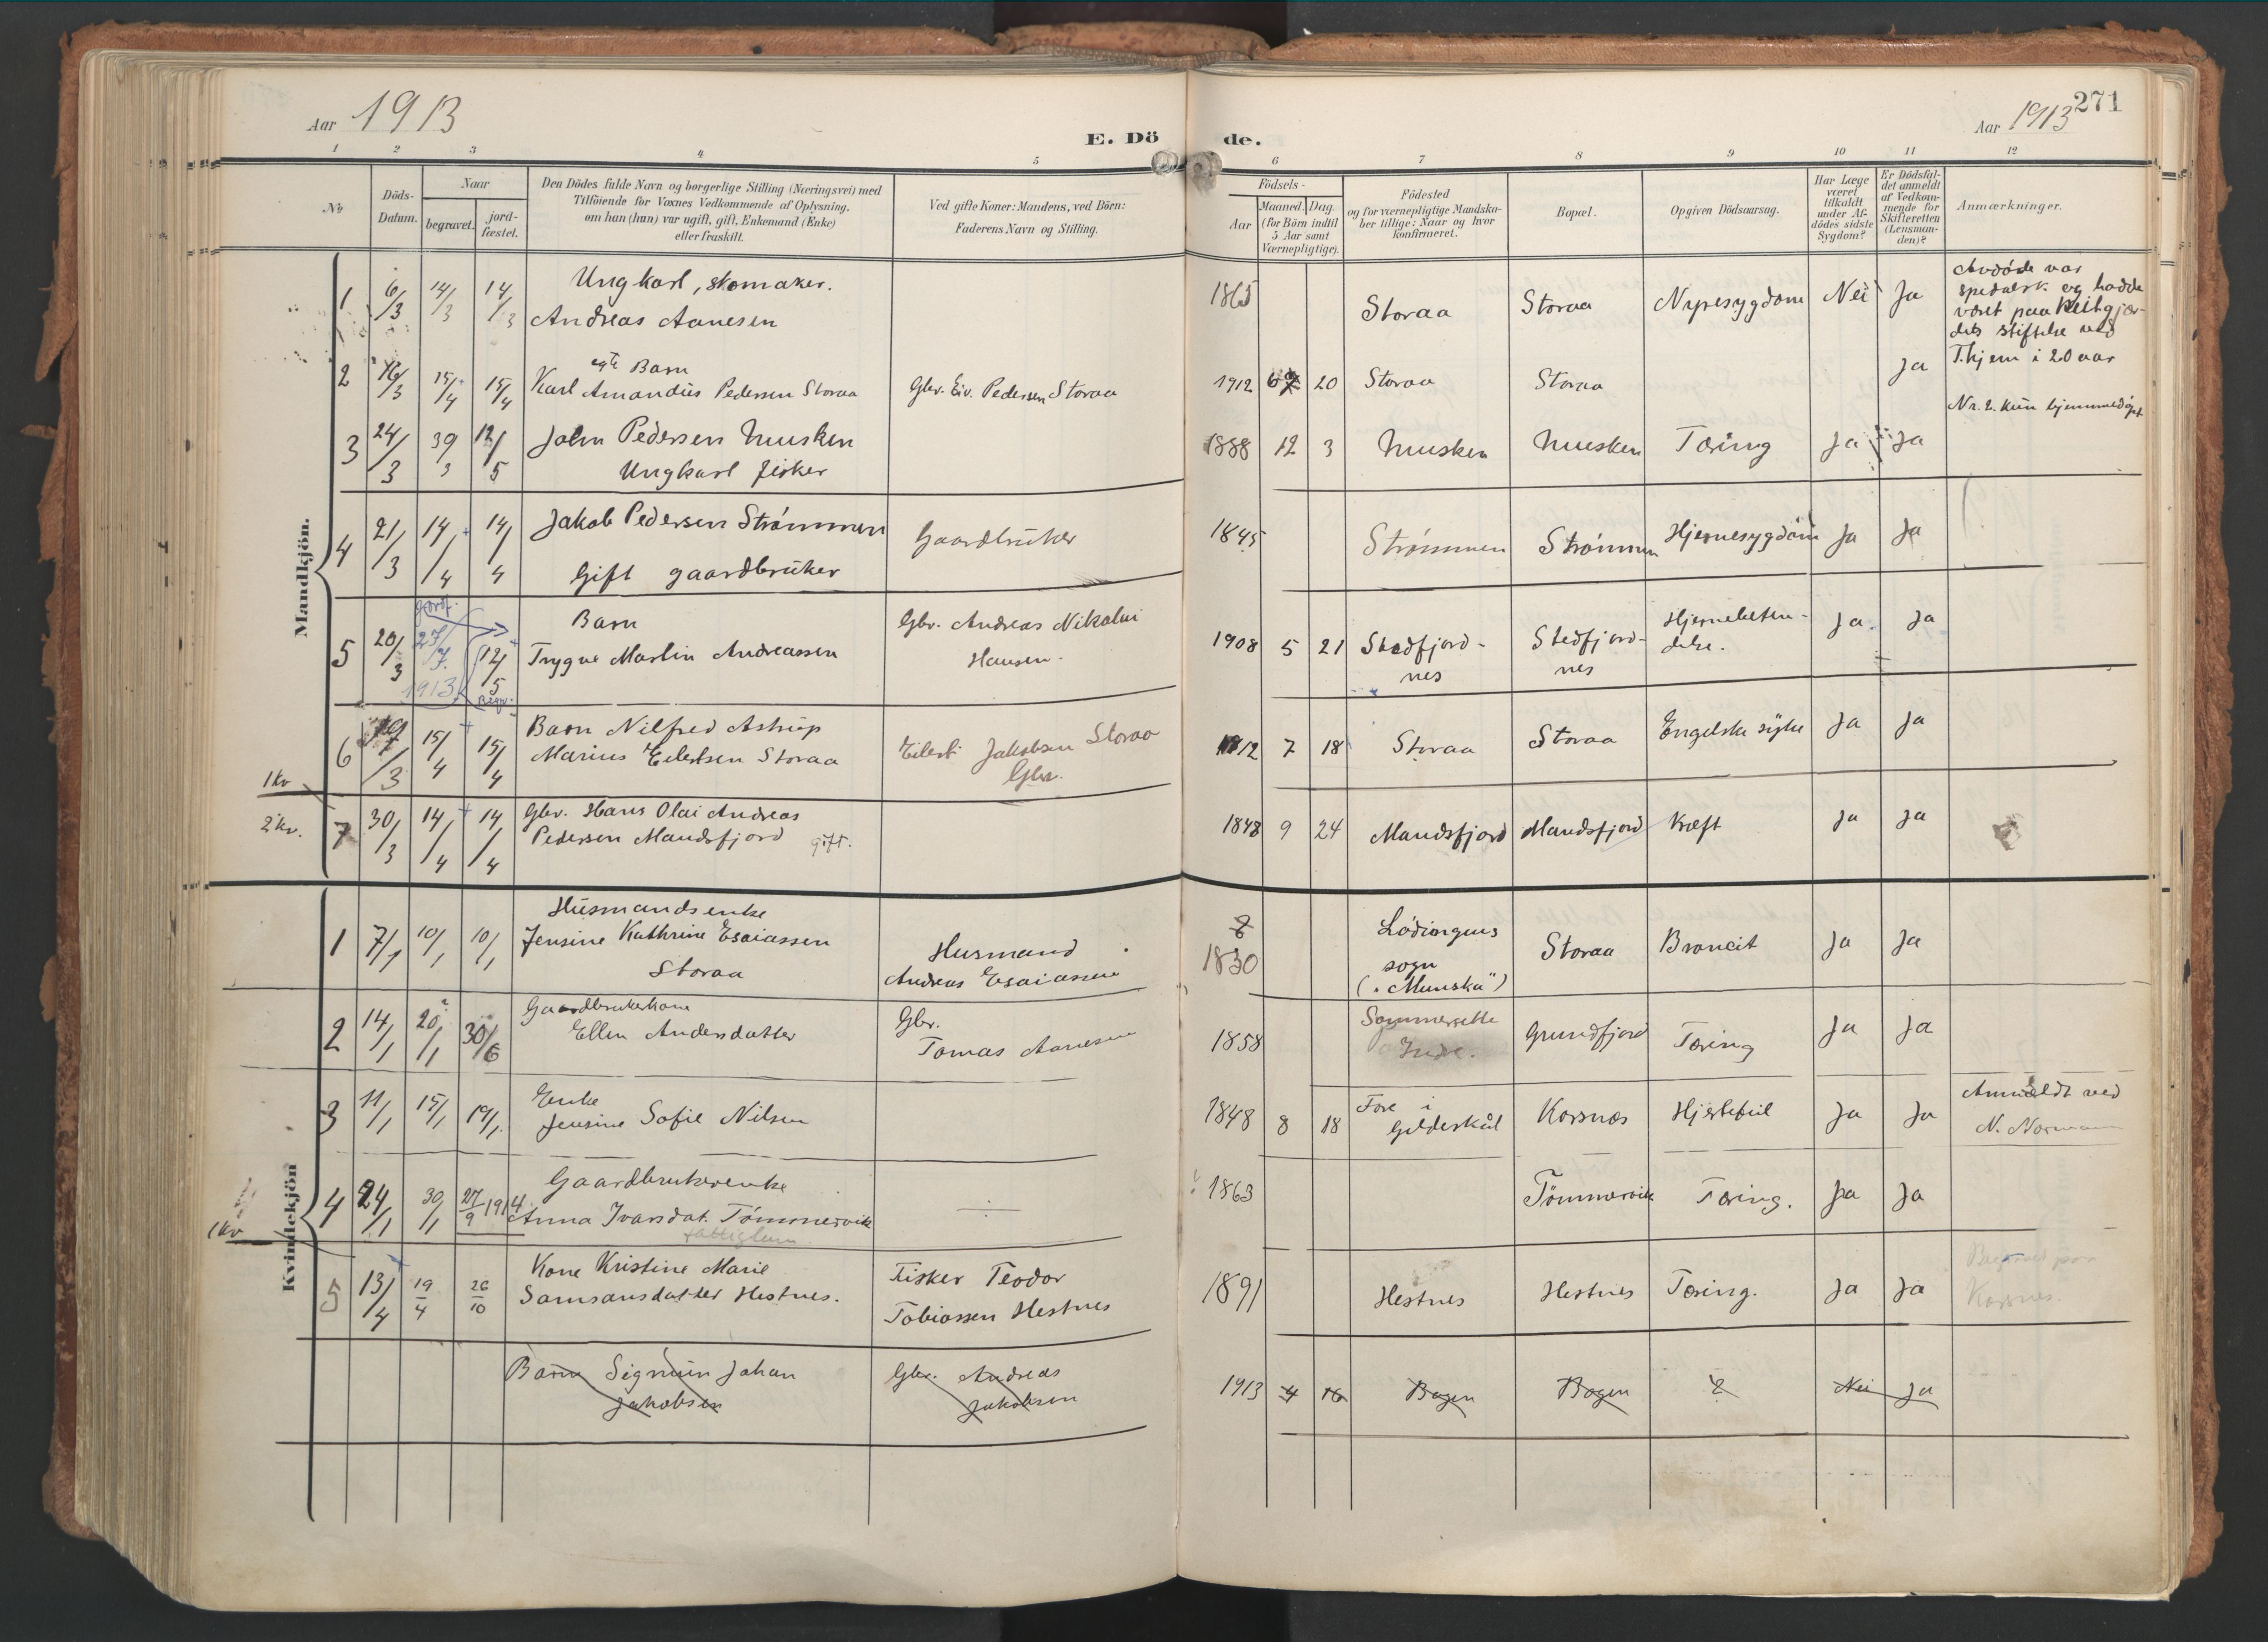 Aar 1913
E. Dö
de.
Aar 1913
271
1 2 3 4 5 6 7 8 9 10 11 12
No
Döds-
Datum.
Naar
begravet.
jord-
fæstet.
Den Dödes fulde Navn og borgerlige Stilling (Næringsvei) med
Tilföiende for Voxnes Vedkommende af Oplysning,
om han (hun) var ugift, gift, Enkemand (Enke)
eller fraskilt.
Ved gifte Koner: Mandens, ved Börn:
Faderens Navn og Stilling.
Födsels-
Aar
Maaned. Dag.
(for Börn indtil
5 Aar samt
Værnepligtige).
Födested
og for værnepligtige Mandska-
ber tillige: Naar og hvor
konfirmeret.
Bopæl.
Opgiven Dödsaarsag.
Har Læge
været
tilkaldt
under Af-
dödes sidste
Sygdom?
Er Dödsfal-
det anmeldt
af Vedkom-
mende for
Skifteretten
(Lensman-
den)?
Anmærkninger.
Mandkjön.
1 6/3 14/3 14/3 Ungkarl, skomaker.
Andreas Aanesen
1865 Storaa Storaa Nyresygdom Nei Ja
Avdöde var
spedalsk og hadde
været paa Reitgjær-
dets stiftelse ved
T.hjem i 20 aar
2 16/3 15/4 15/4 egte Barn
Karl Amandus Pedersen Storaa Gbr. Eiv. Pedersen Storaa
1912 20 Storaa Storaa Ja
Nr. 2. kun hjemmedøpt
3 24/3 39/3 12/5 John Pedersen Musken
Ungkarl fisker
1888 12 3 Musken Musken Tæring Ja Ja
4 21/3 14/4 14/4 Jakob Pedersen Strømmen
Gift gaardbruker
Gaardbruker
1845 Strømmen Strømmen Hjernesygdom Ja Ja
5 20/3 27/7. 1913 12/5 Begr.
Barn
Trygve Martin Andreassen
Gbr. Andreas Nikolai
Hansen.
1908 5 21 Stedfjord-
nes
Stedfjord-
nes
Hjernebeten-
delse.
Ja. Ja
6 15/4 15/4 Barn Nilfred Astrup
Marius Eilertsen Storaa
Eilert Jakobsen Storaa
Gbr.
1912 7 18 Storaa Storaa Engelske syke Ja Ja
1 kv
2 kv.
7 30/3 14/4 14/4 Gbr. Hans Olai Andreas
Pedersen Mandsfjord gift.
1848 9 24 Mandsfjord Mandsfjord Kræft Ja Ja
Kvindekjön
1 7/1 10/1 10/1 Husmandsenke
Jensine Kathrine Esaiassen
Storaa
Husmand
Andreas Esaiassen
?
1830
Lødingens
sogn
("Munska")
Storaa Broncit Ja Ja
2 14/1 20/1 30/6 Gaardbrukerkone
Ellen Andersdatter
Gbr.
Tomas Aanesen
1858 Sommersette
Indr.
Grundfjord Tæring Ja Ja
3 11/1 15/1 19/1. Enke
Jensine Sofie Nilsen
1848 8 18 Fore i
Gildeskål
Korsnæs Hjertefeil Ja Ja
Anmeldt ved
N. Norman
4 24/1 30/1 27/9 1914 Gaardbrukerenke
Anna Ivarsdat. Tømmervik
fattiglem
1863 Tömmervik Tæring. Ja Ja
1 kv
5 13/4 19/4 26/10 Kone Kristine Marie
Samsonsdatter Hestnes.
Fisker Teodor
Tobiassen Hestnes
1891 Hestnes Hestnes Tæring. Ja Ja
Korsnes.
Barn Sigmun Johan
Jakobsen
Gbr. Andreas
Jakobsen
1913 4 16 Bogen Bogen ? Nei Ja